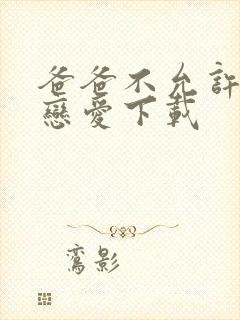 爸爸不允許
戀愛下載
鸞影